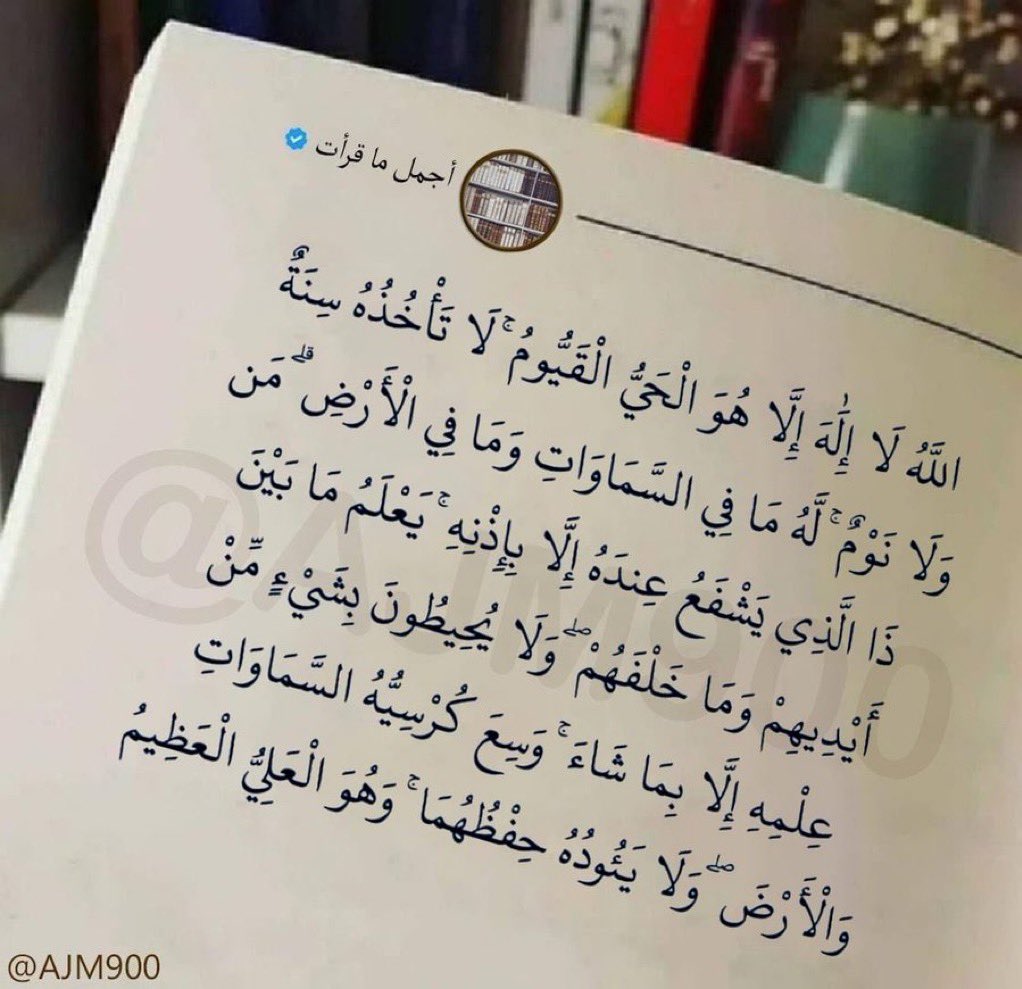 أجمل ما قرأت
اللَّهُ لَا إِلَٰهَ إِلَّا هُوَ الْحَيُّ الْقَيُّومُ ۚ لَا تَأْخُذُهُ سِنَةٌ
وَلَا نَوْمٌ ۚ لَّهُ مَا فِي السَّمَاوَاتِ وَمَا فِي الْأَرْضِ ۗ مَن
ذَا الَّذِي يَشْفَعُ عِندَهُ إِلَّا بِإِذْنِهِ ۚ يَعْلَمُ مَا بَيْنَ
أَيْدِيهِمْ وَمَا خَلْفَهُمْ ۖ وَلَا يُحِيطُونَ بِشَيْءٍ مِّنْ
عِلْمِهِ إِلَّا بِمَا شَاءَ ۚ وَسِعَ كُرْسِيُّهُ السَّمَاوَاتِ
وَالْأَرْضَ ۖ وَلَا يَئُودُهُ حِفْظُهُمَا ۚ وَهُوَ الْعَلِيُّ الْعَظِيمُ
@AJM900
@AJM900